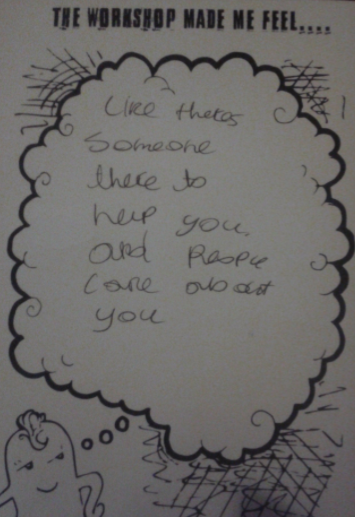 THE WORKSHOP MADE ME FEEL....
Like theres
Someone
there to
help you.
and People
Care about
you